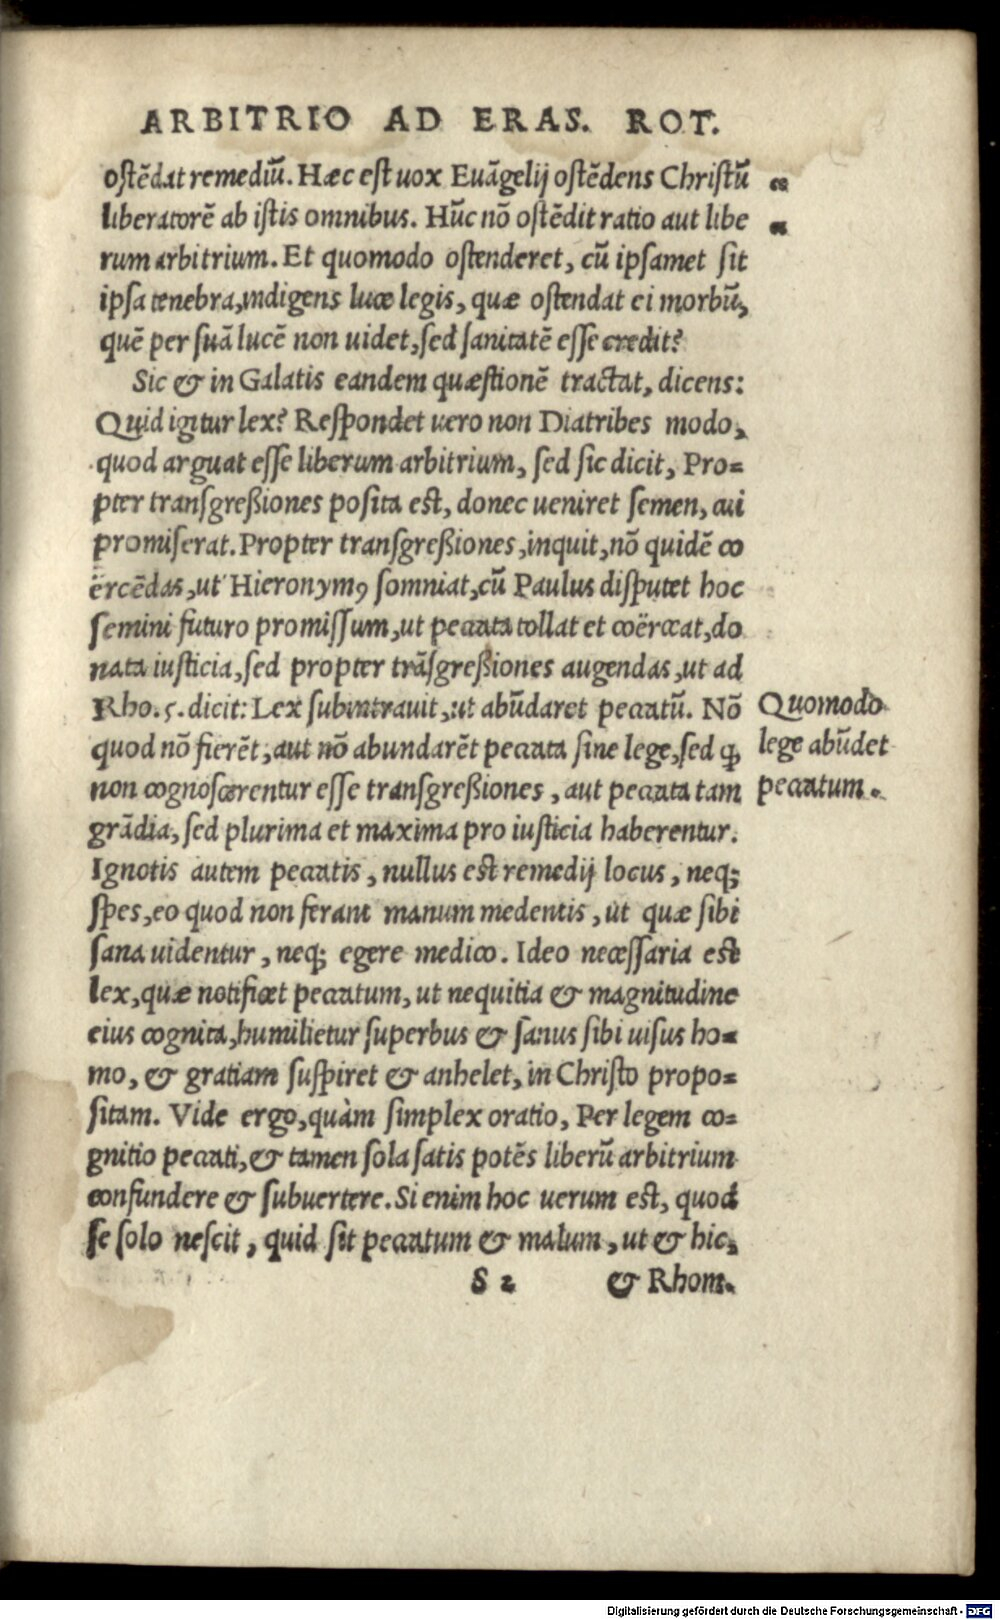 ARBITRIO AD ERAS. ROT.
ostēdat remediū. Hæc est uox Euāgelij ostēdens Christū
liberatorē ab istis omnibus. Hūc nō ostēdit ratio aut libe
rum arbitrium. Et quomodo ostenderet, cū ipsamet sit
ipsa tenebra, indigens luce legis, quæ ostendat ei morbū,
quē per suā lucē non uidet, sed sanitatē esse credit?
Sic & in Galatis eandem quæstionē tractat, dicens:
Quid igitur lex? Respondet uero non Diatribes modo,
quod arguat esse liberum arbitrium, sed sic dicit, Pro-
pter transgreßiones posita est, donec ueniret semen, cui
promiserat. Propter transgreßiones, inquit, nō quidē co
ërcēdas, ut Hieronymꝰ somniat, cū Paulus disputet hoc
semini futuro promissum, ut peccata tollat et coërceat, do
nata iusticia, sed propter trāsgreßiones augendas, ut ad
Rho. 5. dicit: Lex subintrauit, ut abūdaret peccatū. Nō
quod nō fierēt, aut nō abundarēt peccata sine lege, sed ꝙ
non cognoscerentur esse transgreßiones, aut peccata tam
grādia, sed plurima et maxima pro iusticia haberentur.
Ignotis autem peccatis, nullus est remedij locus, neq;
spes, eo quod non ferant manum medentis, ut quæ sibi
sana uidentur, neq; egere medico. Ideo necessaria est
lex, quæ notificet peccatum, ut nequitia & magnitudine
eius cognita, humilietur superbus & sanus sibi uisus ho-
mo, & gratiam suspiret & anhelet, in Christo propo-
sitam. Vide ergo, quàm simplex oratio, Per legem co-
gnitio peccati, & tamen sola satis potēs liberū arbitrium
confundere & subuertere. Si enim hoc uerum est, quod
se solo nescit, quid sit peccatum & malum, ut & hic,
S 2 & Rhom.
Quomodo
lege abūdet
peccatum.
Digitalisierung gefördert durch die Deutsche Forschungsgemeinschaft - DFG